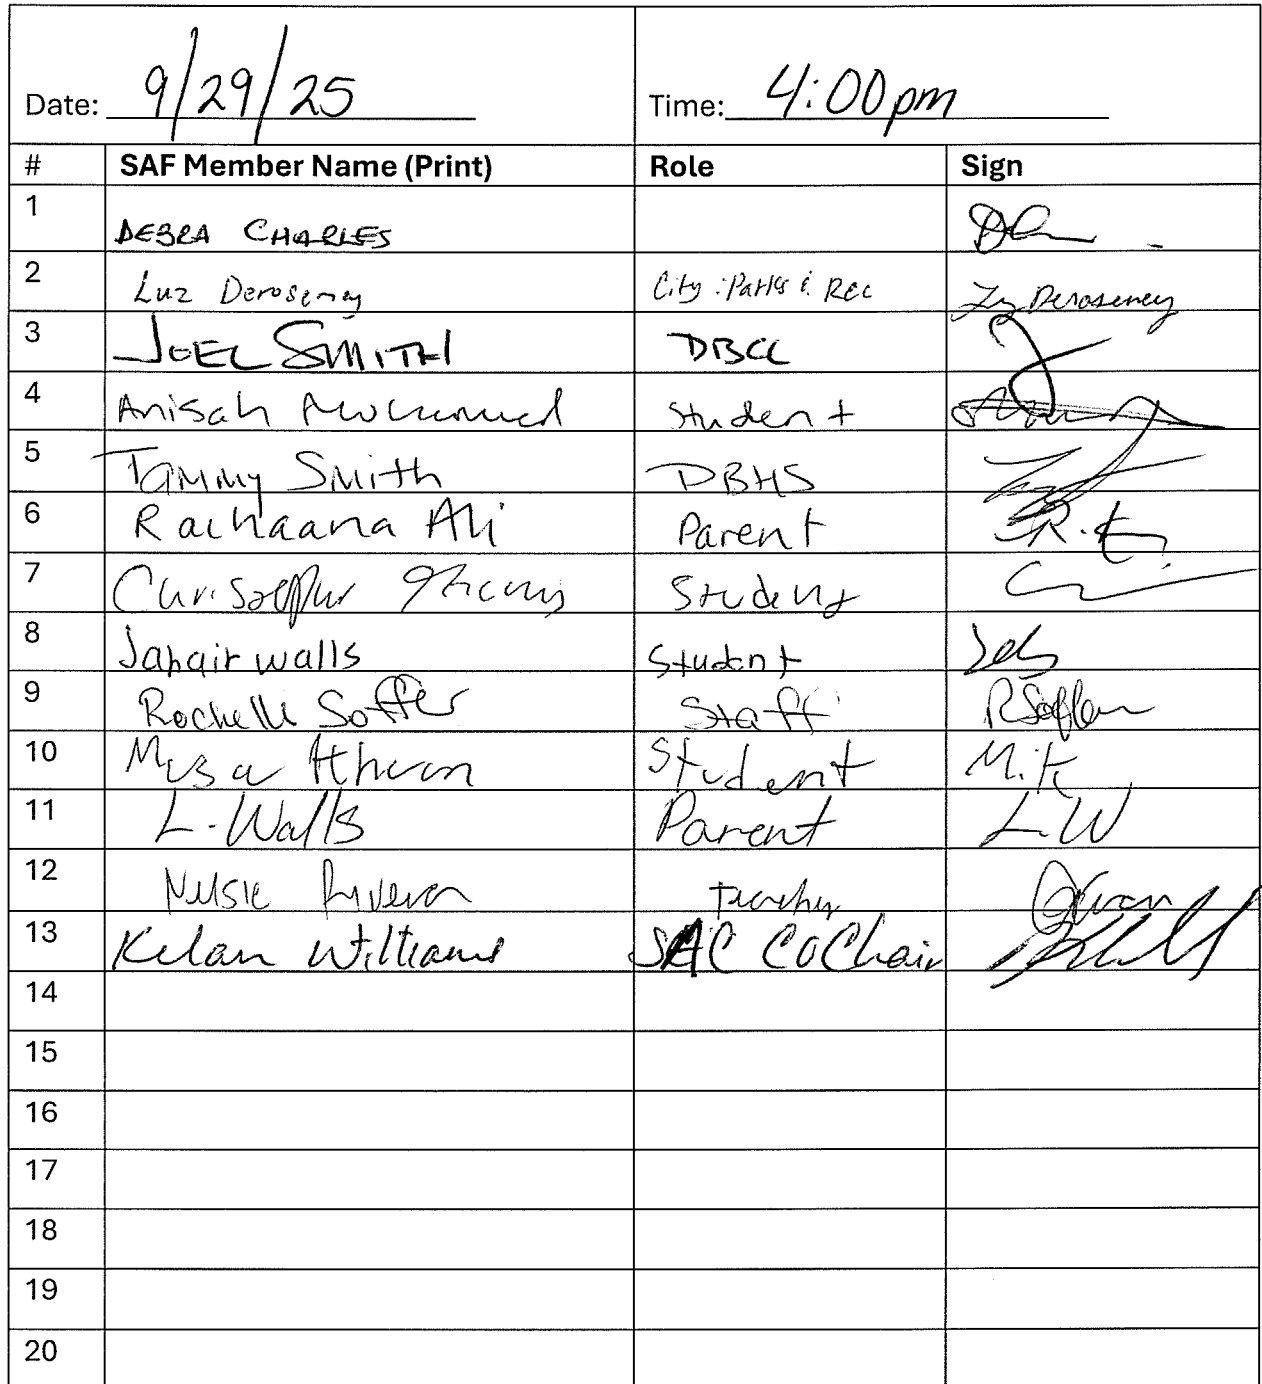 Date: 9/29/25 Time: 4:00pm
# SAF Member Name (Print) Role Sign
1 DEBRA CHARLES
2 Luz Deroseney City : Parks & Rec Luz Deroseney
3 JOEL SMITH DBCC
4 Anisah Mohammed Student
5 Tammy Smith DBHS
6 Rachaana Ali Parent R.A
7 Student
8 Jahair walls Student
9 Rochelle Soffer Staff RSoffer
10 Musa Student
11 L. Walls Parent L.W
12 Rivera teacher
13 Kelan Williams SAC CoChair
14
15
16
17
18
19
20